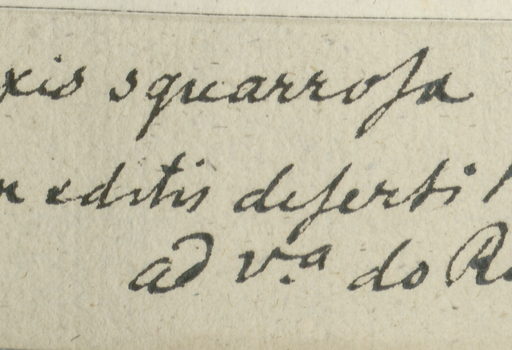 xis squarrosa
n editis deserti
ad v.a do R